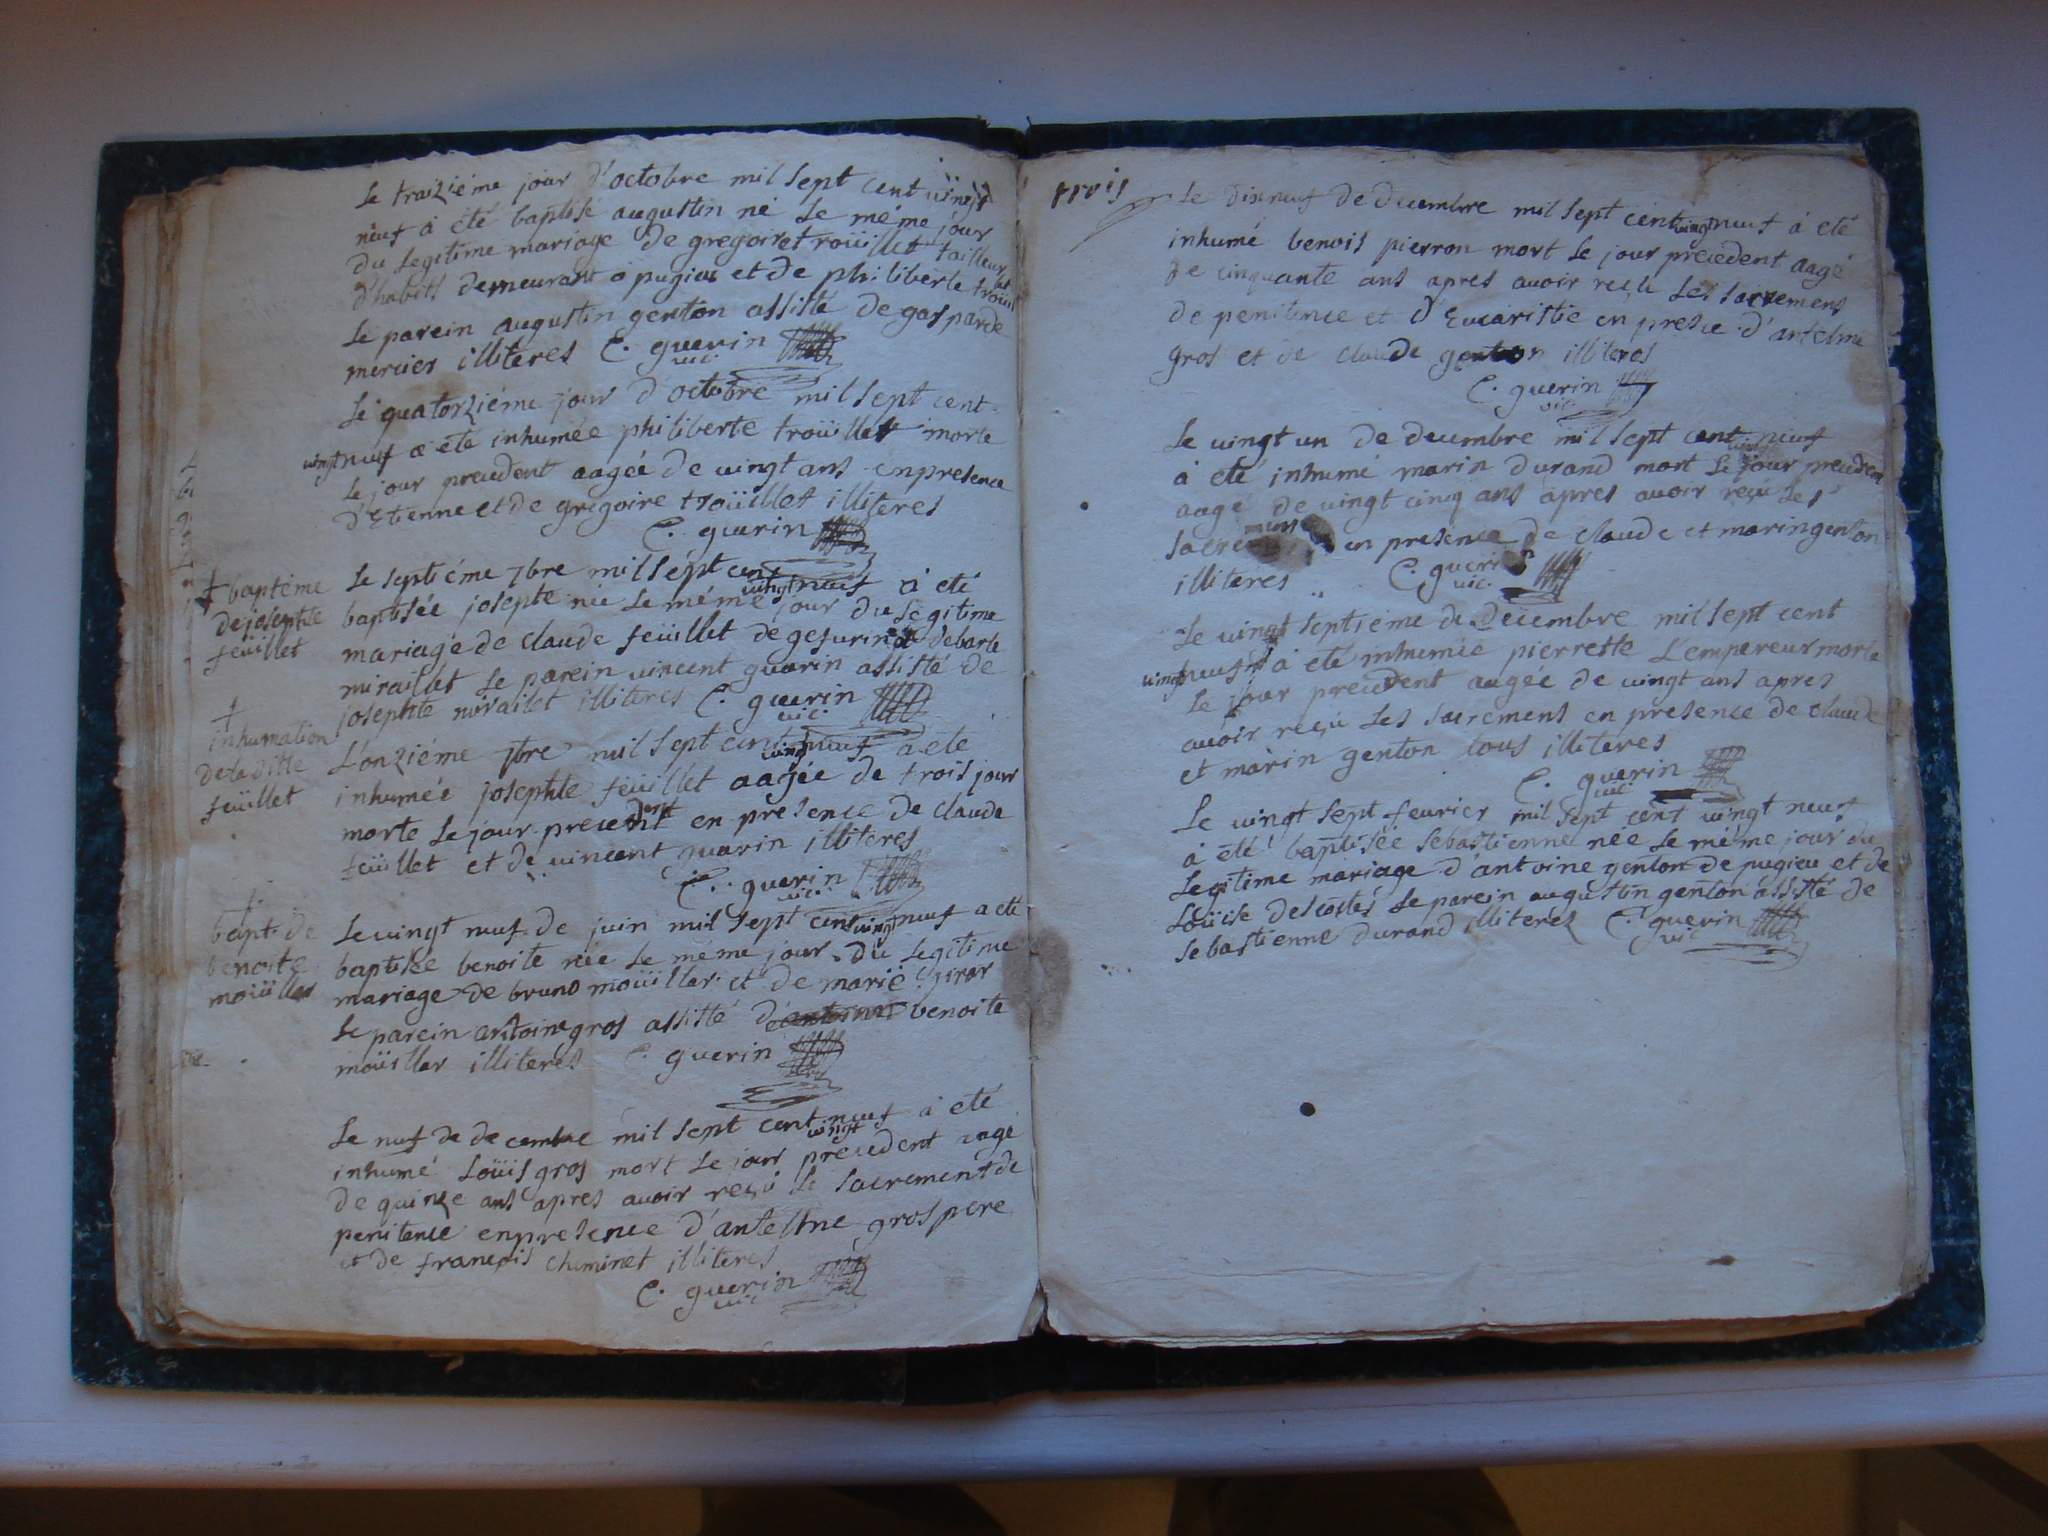 Le traiziéme jour d'octobre mil sept cent vingt
neuf à été baptisé augustin né le meme jour
du legitime mariage de gregoire troüillet tailleur
d'habits demeurant a pugieu et de philiberte troüillet
le parein augustin genton assisté de gasparde
mercier illiteres C. guerin
vic.
Le quatorziéme jour d'octobre mil sept cent
vingt neuf a été inhumée philiberte troüillet morte
le jour precedent aagée de vingt ans en presence
d'Etienne et de gregoire troüillet illiteres
C. guerin
† baptême
de josephte
feüillet
Le septiéme 7bre mil sept cent vingt neuf à eté
baptisée josephte née le méme jour du légitime
mariage de claude feüillet de gesurin et debarbe
miraillet le parein vincent guarin assisté de
josephte miraillet illiteres C. guerin
vic.
†
inhumation
de la ditte
feüillet
L'onziéme 7bre mil sept cent vingt neuf à eté
inhumée josephte feüillet aagée de trois jour
morte le jour precedent en presence de claude
feüillet et de vincent guarin illiteres
C. guerin
vic.
†
bapt. de
benoite
moüillar
Le vingt neuf de juin mil sept cent vingt neuf a eté
baptisée benoite née le méme jour du legitime
mariage de bruno moüillar et de marie girar
le parein antoine gros assisté d' benoite
moüillar illiteres C. guerin
Le neuf de decembre mil sept cent vingt neuf à eté
inhumé Loüis gros mort le jour precedent aagé
de quinze ans apres avoir reçu le sacrement de
penitence en presence d'antelme gros pere
et de françois cheminet illiteres
C. guerin
vic.
trois
Le dixneuf de decembre mil sept cent vingt neuf à eté
inhumé benois pierron mort le jour precedent aagé
de cinquante ans apres avoir reçu les sacremens
de penitence et d'Eucaristie en presce d'antelme
gros et de claude genton illiteres
C. guerin
vic.
Le vingt un de decembre mil sept cent vingt neuf
à eté inhumé marin durand mort le jour precedent
aagé de vingt cinq ans apres avoir reçu les
sacremens en presence de claude et marin genton
illiteres C. guerin
vic.
Le vingt septiéme de Decembre mil sept cent
vingt neuf à eté inhumée pierrette L'empereur morte
le jour precedent aagée de vingt ans apres
avoir reçu les sacremens en presence de claude
et marin genton tous illiteres
C. guerin
vic.
Le vingt sept fevrier mil sept cent vingt neuf
à eté baptisée sebastienne née le méme jour du
legitime mariage d'antoine genton de pugieu et de
Loüise descostes le parein augustin genton assisté de
sebastienne durand illiteres C. guerin
vic.